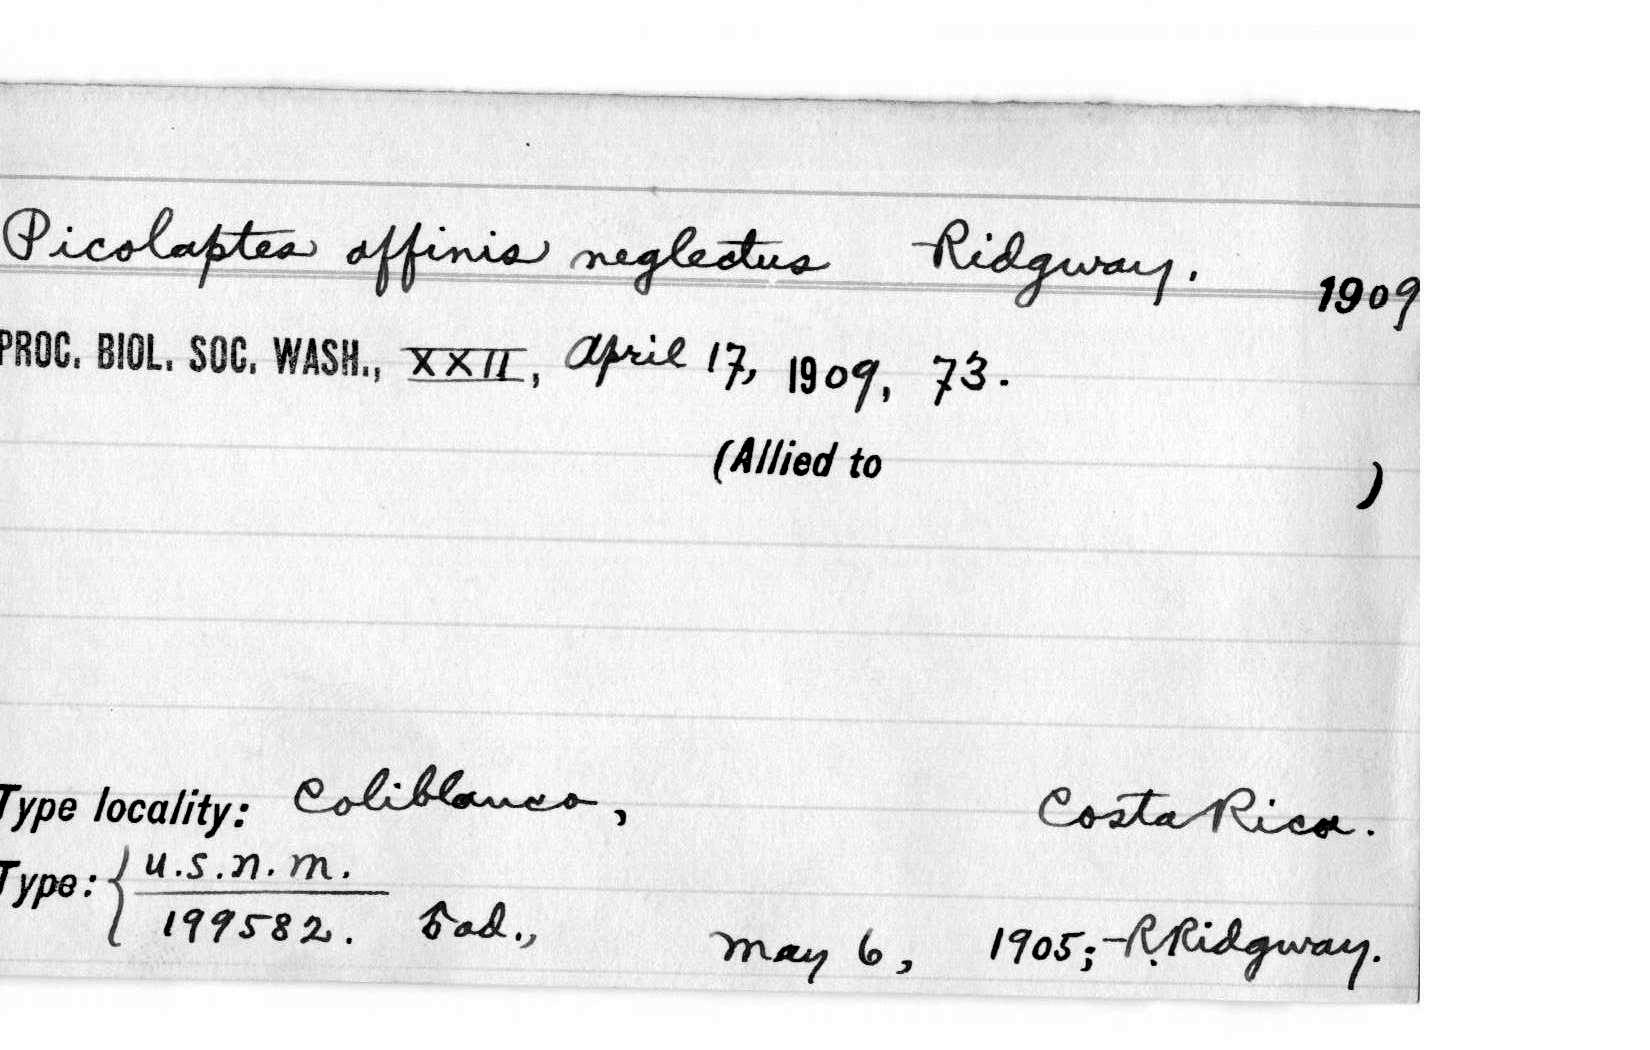 Picolaptes affinis neglectus Ridgway. 1909
PROC. BIOL. SOC. WASH., XXII, April 17, 1909, 73.
(Allied to )
Type locality: Coliblanco, Costa Rica.
Type: { U.S.N.M.
199582. ♂ ad., May 6, 1905; - R. Ridgway.